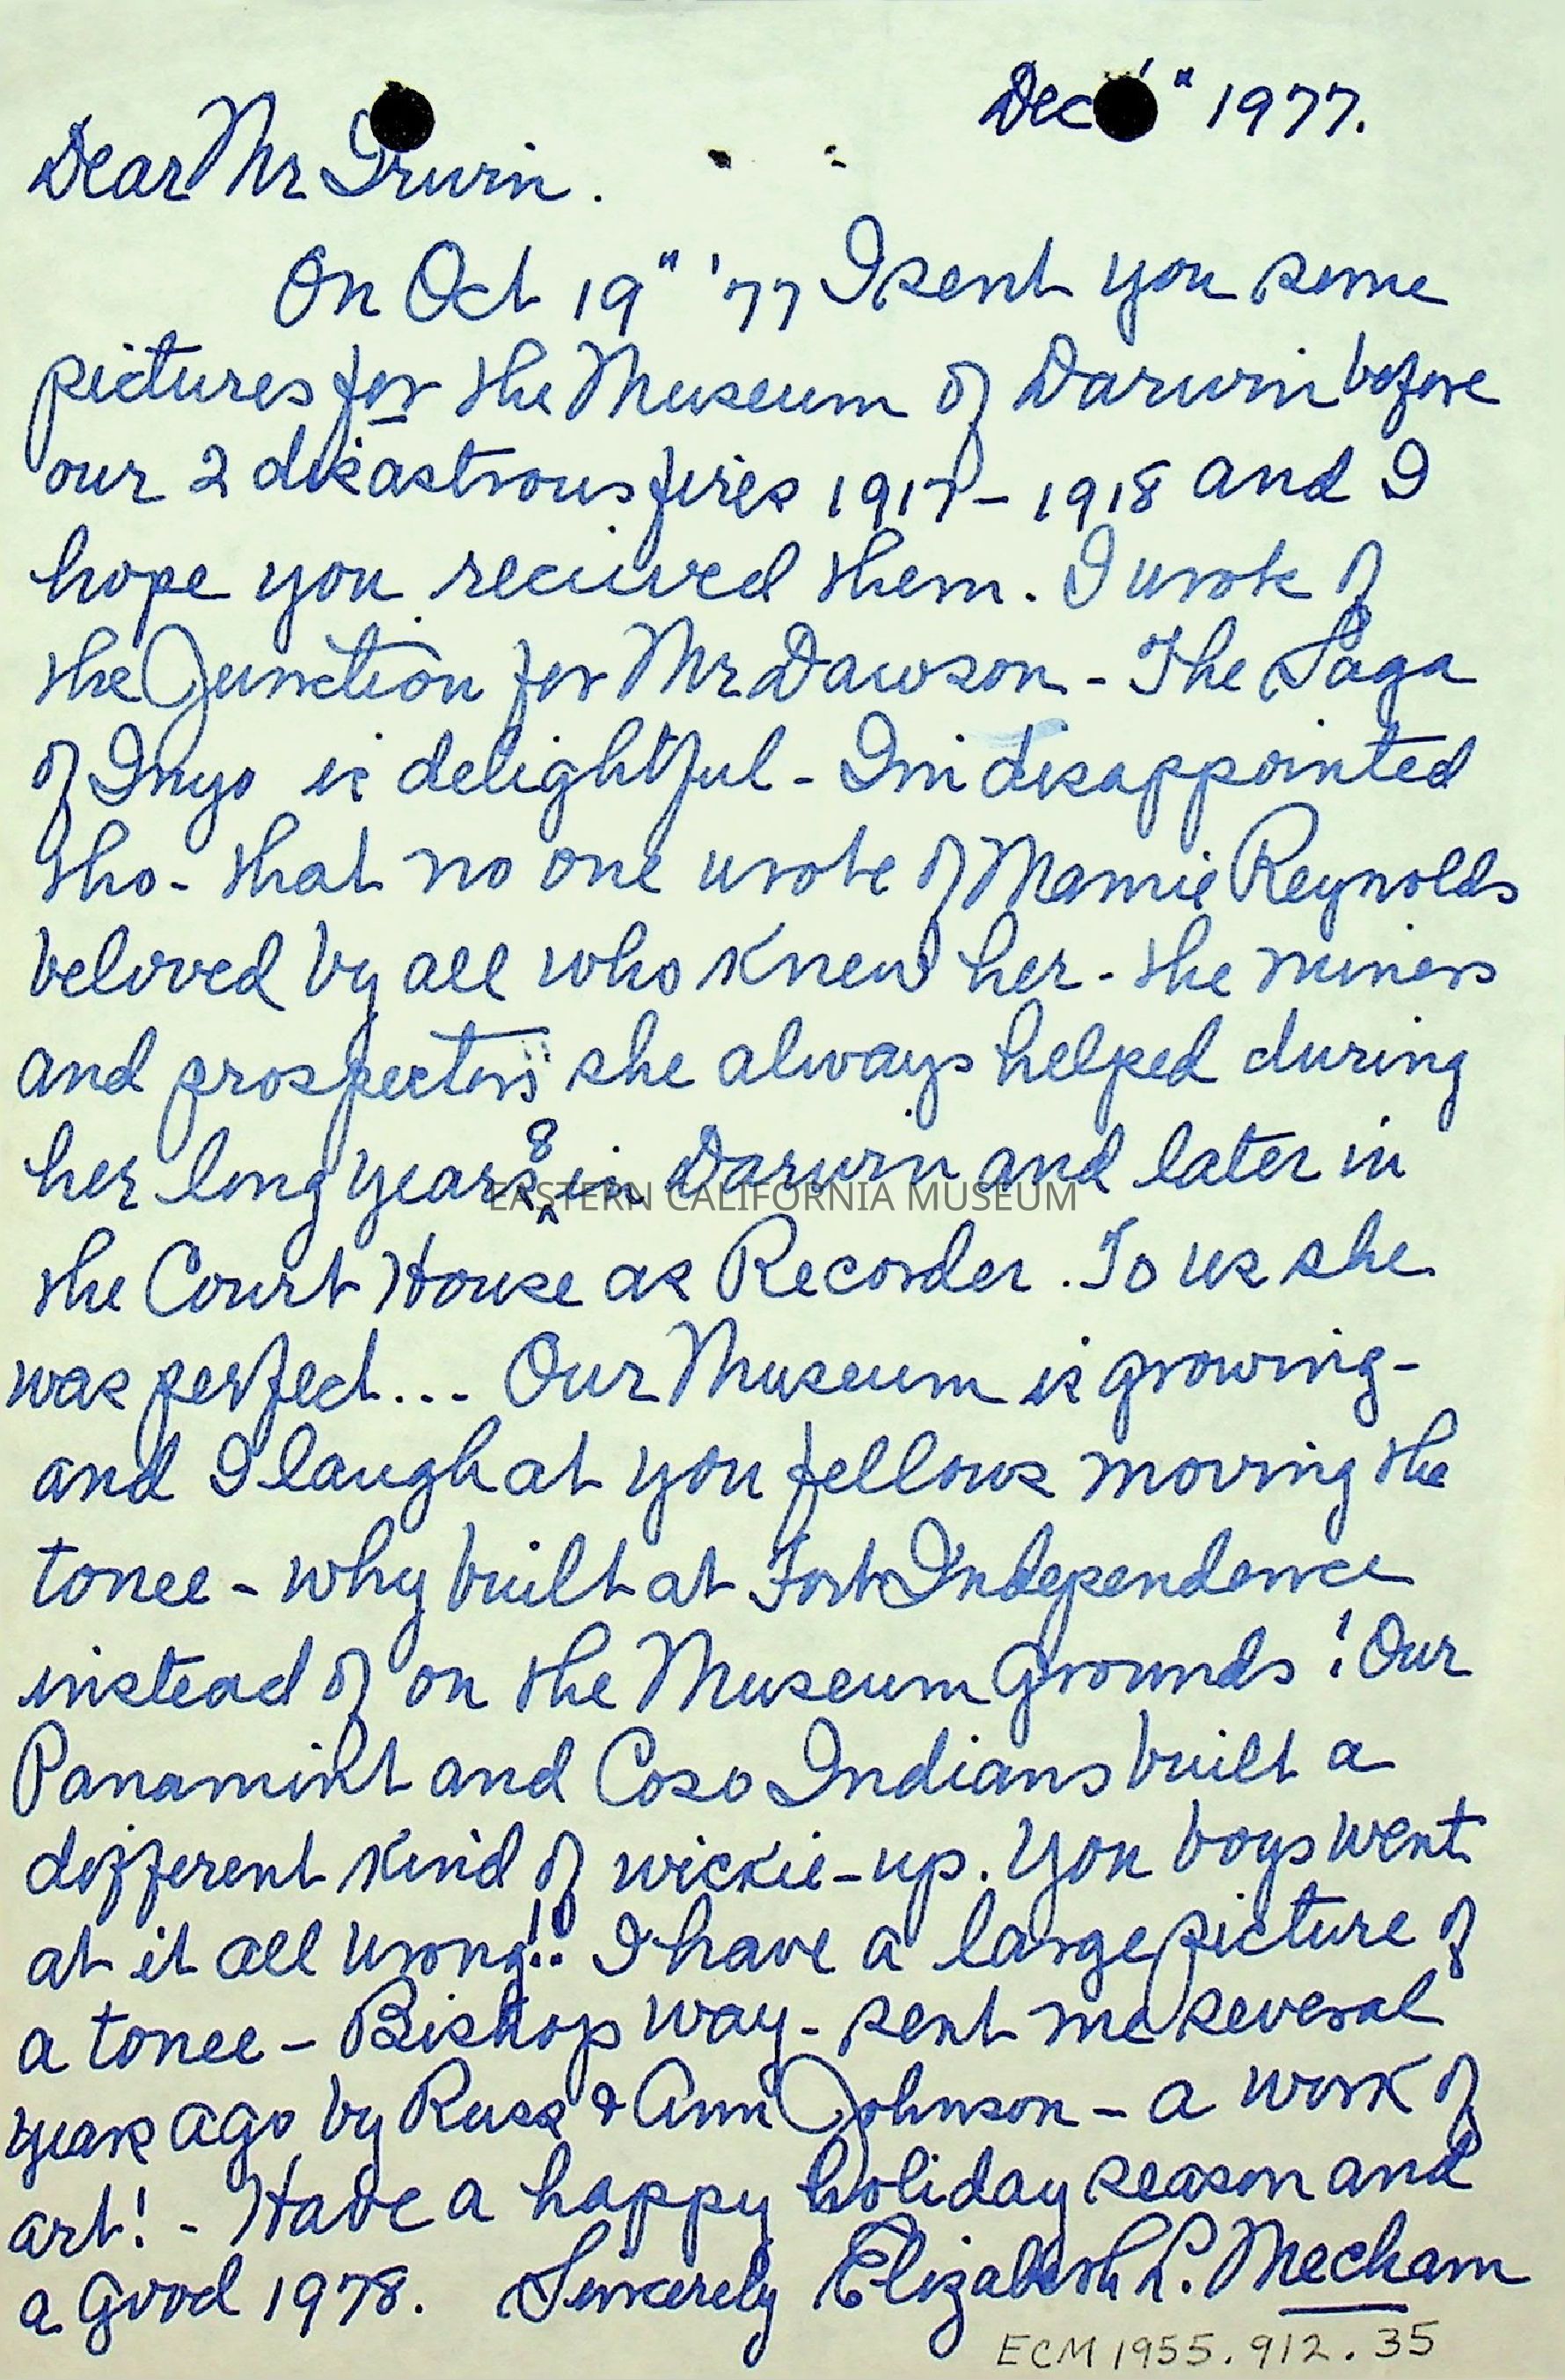 Dec " 1977.
Dear Mr Irwin.
On Oct 19" '77 I sent you some
pictures for the Museum of Darwin before
our 2 disastrous fires 1917-1918 and I
hope you recieved them. I wrote of
the Junction for Mr Dawson - The Saga
of Inyo is delightful - I'm disappointed
tho - that no one wrote of Mamie Reynolds
beloved by all who knew her - the miners
and prospectors she always helped during
8
her long years in Darwin and later in
EASTERN CALIFORNIA MUSEUM
the Court House as Recorder. To us she
was perfect... Our Museum is growing -
and I laugh at you fellows moving the
tonee - why built at Fort Independence
instead of on the Museum Grounds! Our
Panamint and Coso Indians built a
different kind of wickie-up. You boys went
at it all wrong!! I have a large picture of
a tonee - Bishop way - sent me several
years ago by Russ & Ann Johnson - a work of
art! - Have a happy holiday season and
a good 1978. Sincerely Elizabeth L. Mecham
ECM 1955.912.35